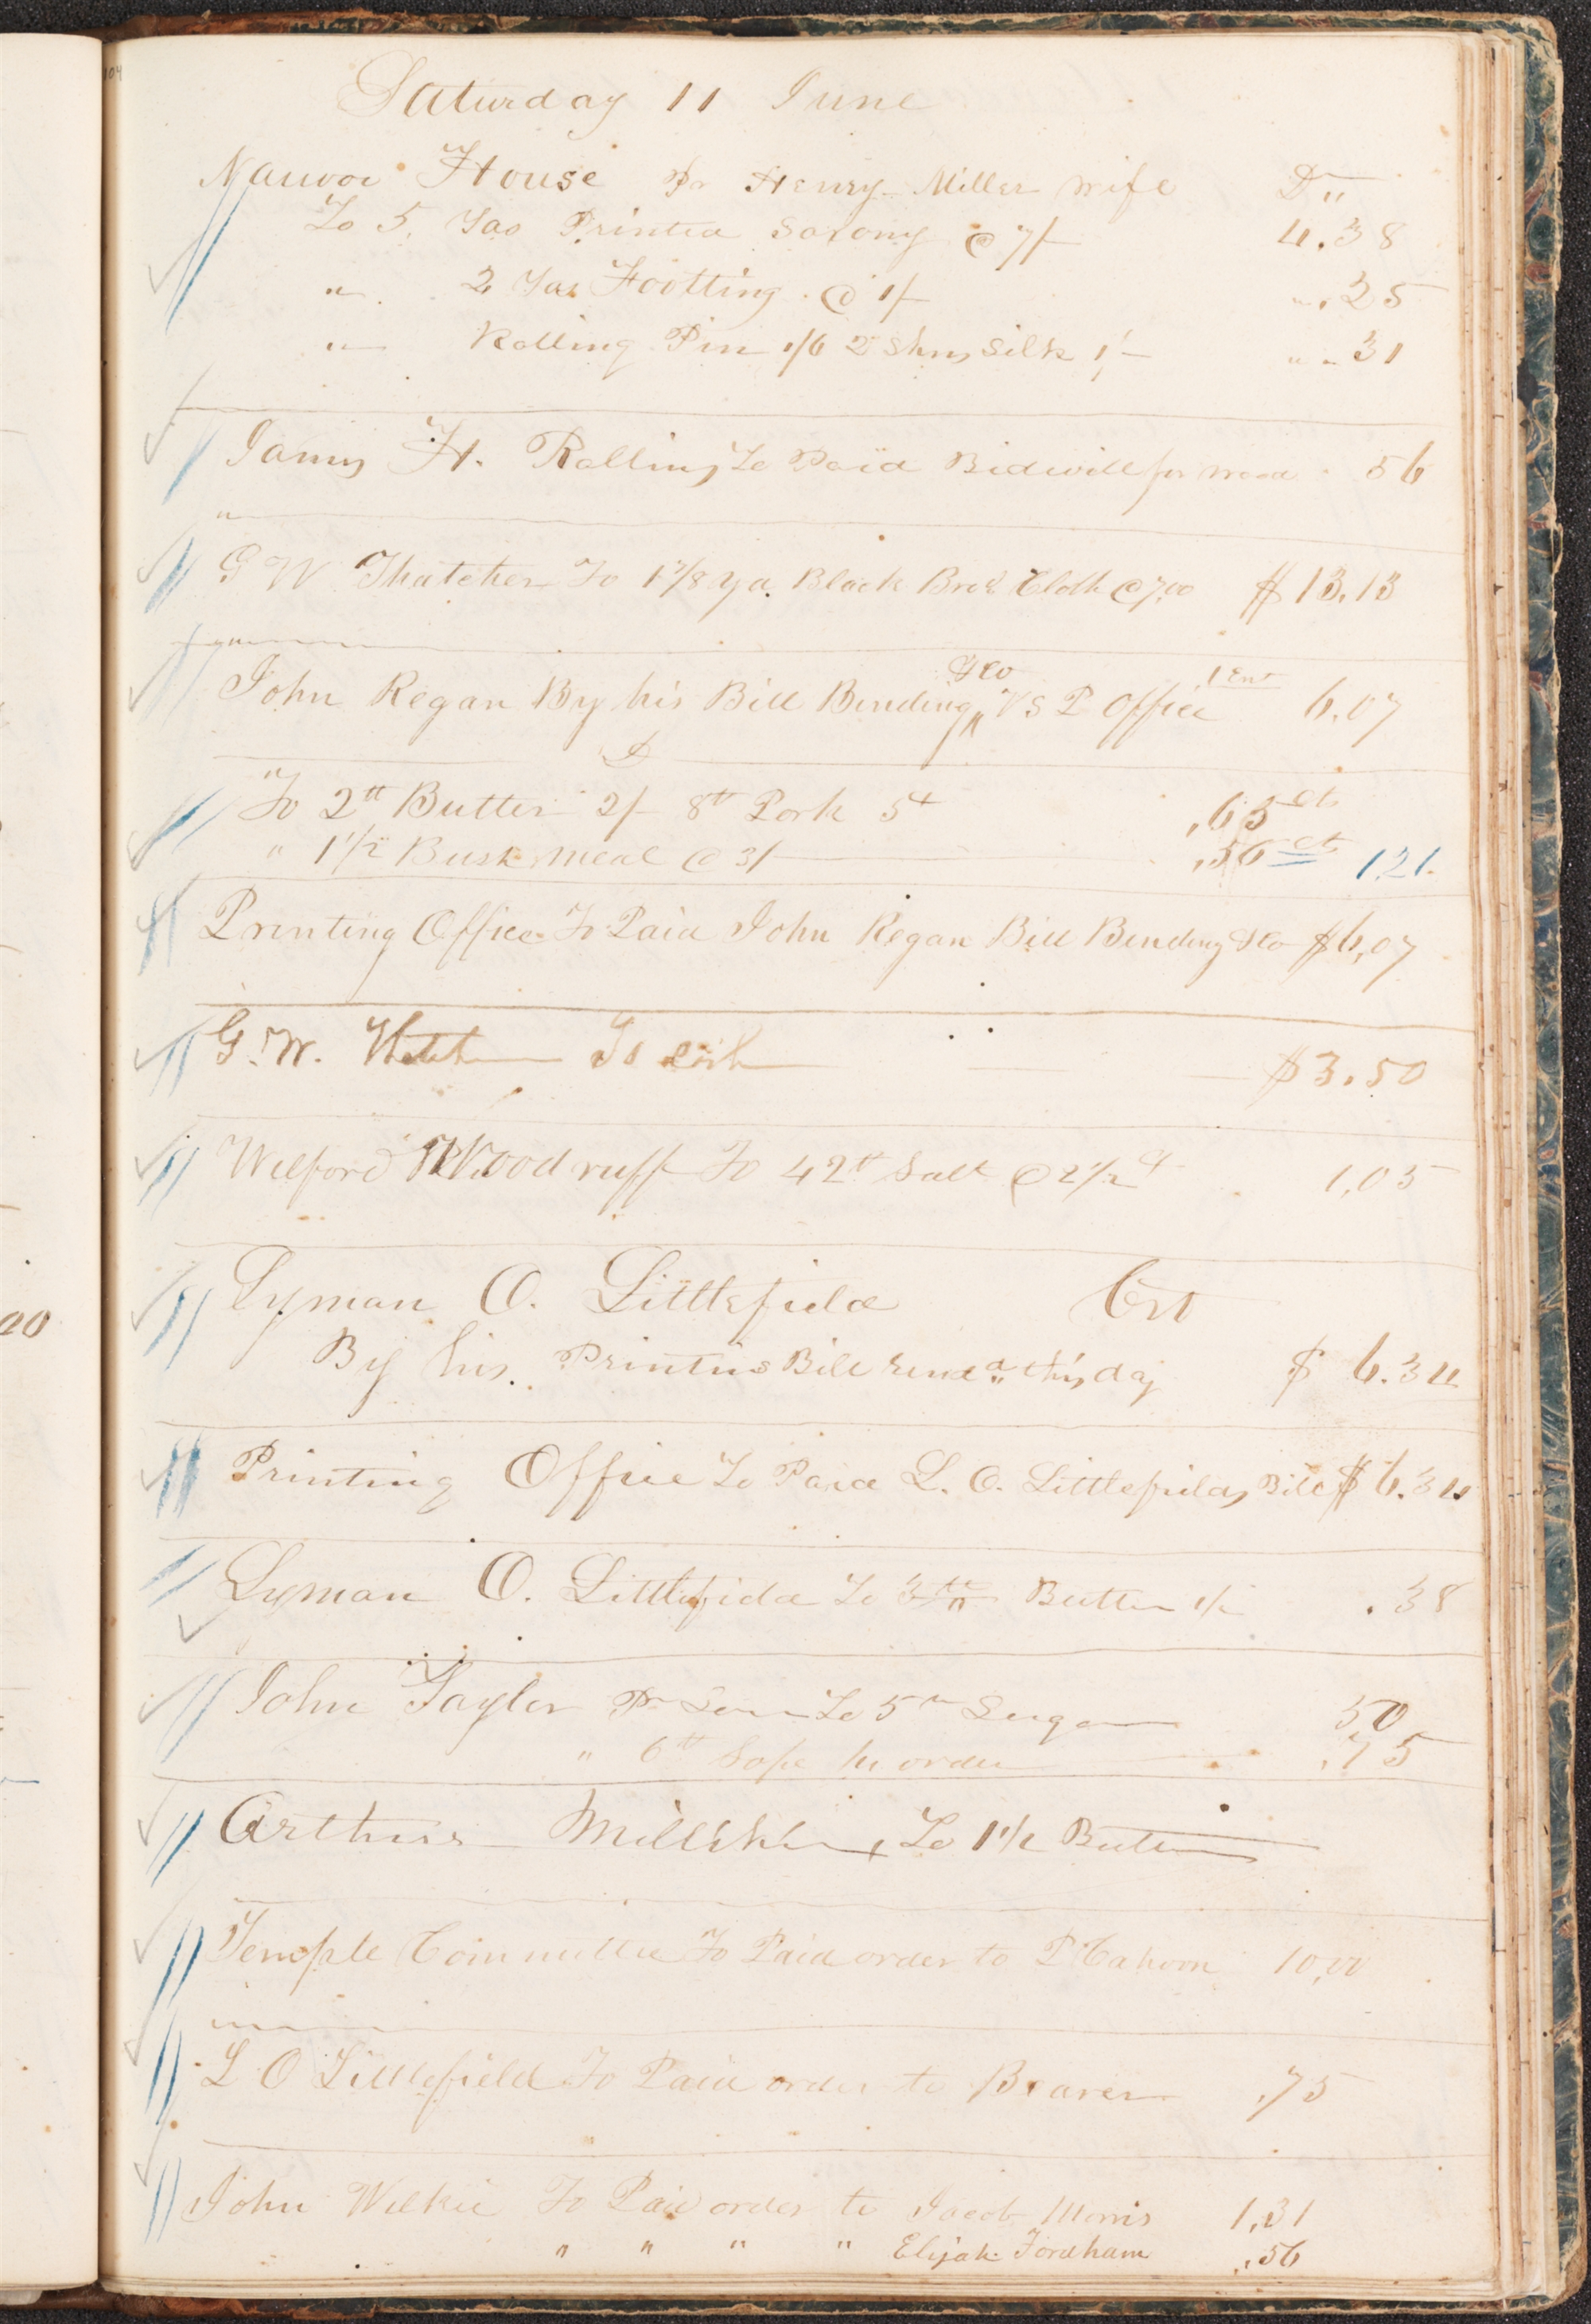 104
Saturday 11 June
Nauvoo House Pr Henry Miller wife Dr
To 5 Yds Printed Saxony @ 7/- 4.38
" 2 Yds Footting @ 1/- .25
" Rolling Pin 1/6 2 Skns Silk 1/- " 31
James H. Rollins To Paid Bidwill for wood 56
G W Thatcher To 1 7/8 Yd Black Brod Cloth @ 7,00 $13.13
John Regan By his Bill Binding &co VS P Office 1 Ent 6.07
D
To 2 tt Butter 2/- 8 tt Pork 5 ct ,65 cts
" 1 1/2 Bush meal @ 3/- ,56 cts 1.21
Printing Office To Paid John Regan Bill Binding &co $6,07
G. W. Thatcher To cash $3.50
Wilford Woodruff To 42 tt Salt @ 2 1/2 ct 1,05
Lyman O. Littlefield Cr
By his Printing Bill rend this day $ 6.34
Printing Office To Paid L. O. Littlefields Bill $ 6.34
Lyman O. Littlefield To 3 tt Butter 1/- .38
John Taylor Pr Son To 5 tt Sugar 50
" 6 tt Sope pr order .75
Arthur Millikin To 1 1/2 Butter
Temple Committee To Paid order to P Cahoon 10,00
L O Littlefield To Paid order to Bearer .75
John Wilkie To Paid order to Jacob Morris 1,31
" " " " Elijah Fordham .56
20